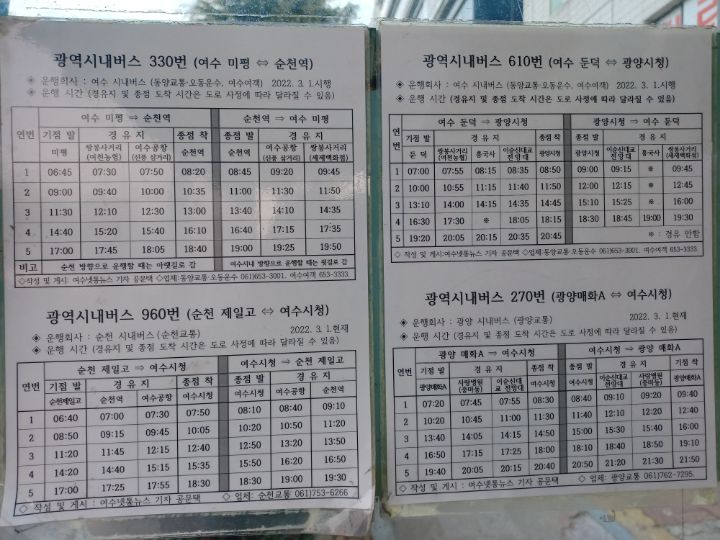 광역시내버스 330번 (여수 미평 ⇔ 순천역)
◈ 운행회사 : 여수 시내버스 (동양교통·오동운수, 여수여객) 2022. 3. 1.시행
◈ 운행 시간 (경유지 및 종점 도착 시간은 도로 사정에 따라 달라질 수 있음)
연번 여수 미평 ⇒ 순천역 순천역 ⇒ 여수 미평
기점 발 경 유 지 종점 착 종점 발 경 유 지
미평 쌍봉사거리 (여천농협) 여수공항 (신풍 삼거리) 순천역 순천역 여수공항 (신풍 삼거리) 쌍봉사거리 (세계백화점)
1 06:45 07:30 07:50 08:20 08:45 09:20 09:45
2 09:00 09:40 10:00 10:35 11:00 11:30 11:50
3 11:30 12:10 12:30 13:00 13:40 14:10 14:35
4 14:40 15:20 15:40 16:10 16:40 17:15 17:35
5 17:00 17:45 18:05 18:40 19:00 19:25 19:50
비고 순천 방향으로 운행할 때는 아랫길로 감 여수시내 방향으로 운행할 때는 윗길로 감
◇작성 및 게시: 여수넷통뉴스 기자 공문택 ◇업체:동양교통·오동운수 061)653-3001. 여수여객 653-3333.
광역시내버스 960번 (순천 제일고 ⇔ 여수시청)
◈ 운행회사 : 순천 시내버스 (순천교통) 2022. 3. 1.현재
◈ 운행 시간 (경유지 및 종점 도착 시간은 도로 사정에 따라 달라질 수 있음)
연번 순천 제일고 ⇒ 여수시청 여수시청 ⇒ 순천 제일고
기점 발 경 유 지 종점 착 종점 발 경 유 지
순천제일고 순천역 여수공항 여수시청 여수시청 여수공항 순천역
1 06:40 07:00 07:30 07:50 08:10 08:40 09:10
2 08:50 09:15 09:45 10:05 10:20 10:50 11:20
3 11:20 11:45 12:15 12:40 12:50 13:20 13:50
4 14:20 14:40 15:15 15:35 15:50 16:20 16:50
5 17:00 17:25 17:55 18:30 18:30 19:00 19:30
◇ 작성 및 게시 : 여수넷통뉴스 기자 공문택 ◇ 업체: 순천교통 061)753-6266
광역시내버스 610번 (여수 둔덕 ⇔ 광양시청)
◈ 운행회사 : 여수 시내버스 (동양교통·오동운수, 여수여객) 2022. 3. 1.시행
◈ 운행 시간 (경유지 및 종점 도착 시간은 도로 사정에 따라 달라질 수 있음)
연번 여수 둔덕 ⇒ 광양시청 광양시청 ⇒ 여수 둔덕
기점 발 경 유 지 종점착 종점 발 경 유 지
둔 덕 쌍봉사거리 (여천농협) 흥국사 이순신대교 전망대 광양시청 광양시청 이순신대교 전망대 흥국사 쌍봉사거리 (세계백화점)
1 07:00 07:55 08:15 08:35 08:50 09:00 09:15 ※ 09:45
2 10:00 10:55 11:15 11:40 11:50 12:00 12:15 ※ 12:45
3 13:10 14:00 14:15 14:35 14:45 15:10 15:25 ※ 16:00
4 16:30 17:30 ※ 18:05 18:15 18:30 18:45 19:00 19:30
5 19:20 20:05 20:15 20:35 20:45 ※ : 경유 안함
◇ 작성 및 게시:여수넷통뉴스 기자 공문택 ◇업체:동양교통·오동운수 061)653-3001. 여수여객 653-3333
광역시내버스 270번 (광양매화A ⇔ 여수시청)
◈ 운행회사 : 광양 시내버스 (광양교통) 2022. 3. 1.현재
◈ 운행 시간 (경유지 및 종점 도착 시간은 도로 사정에 따라 달라질 수 있음)
연번 광양 매화A ⇒ 여수시청 여수시청 ⇒ 광양 매화A
기점 발 경 유 지 종점 착 종점 발 경 유 지 기점 착
광양매화A 사랑병원 (중마동) 이순신대교 전망대 여수시청 여수시청 이순신대교 전망대 사랑병원 (중마동) 광양매화A
1 07:20 07:45 07:55 08:30 08:40 09:10 09:20 09:40
2 10:20 10:45 11:00 11:30 11:40 12:10 12:20 12:40
3 13:40 14:05 14:15 14:50 15:00 15:30 15:40 16:00
4 16:50 17:15 17:25 18:00 18:10 18:40 18:50 19:10
5 19:40 20:05 20:15 20:40 20:50 21:20 21:30 21:50
◇ 작성 및 게시 : 여수넷통뉴스 기자 공문택 ◇ 업체: 광양교통 061)762-7295.